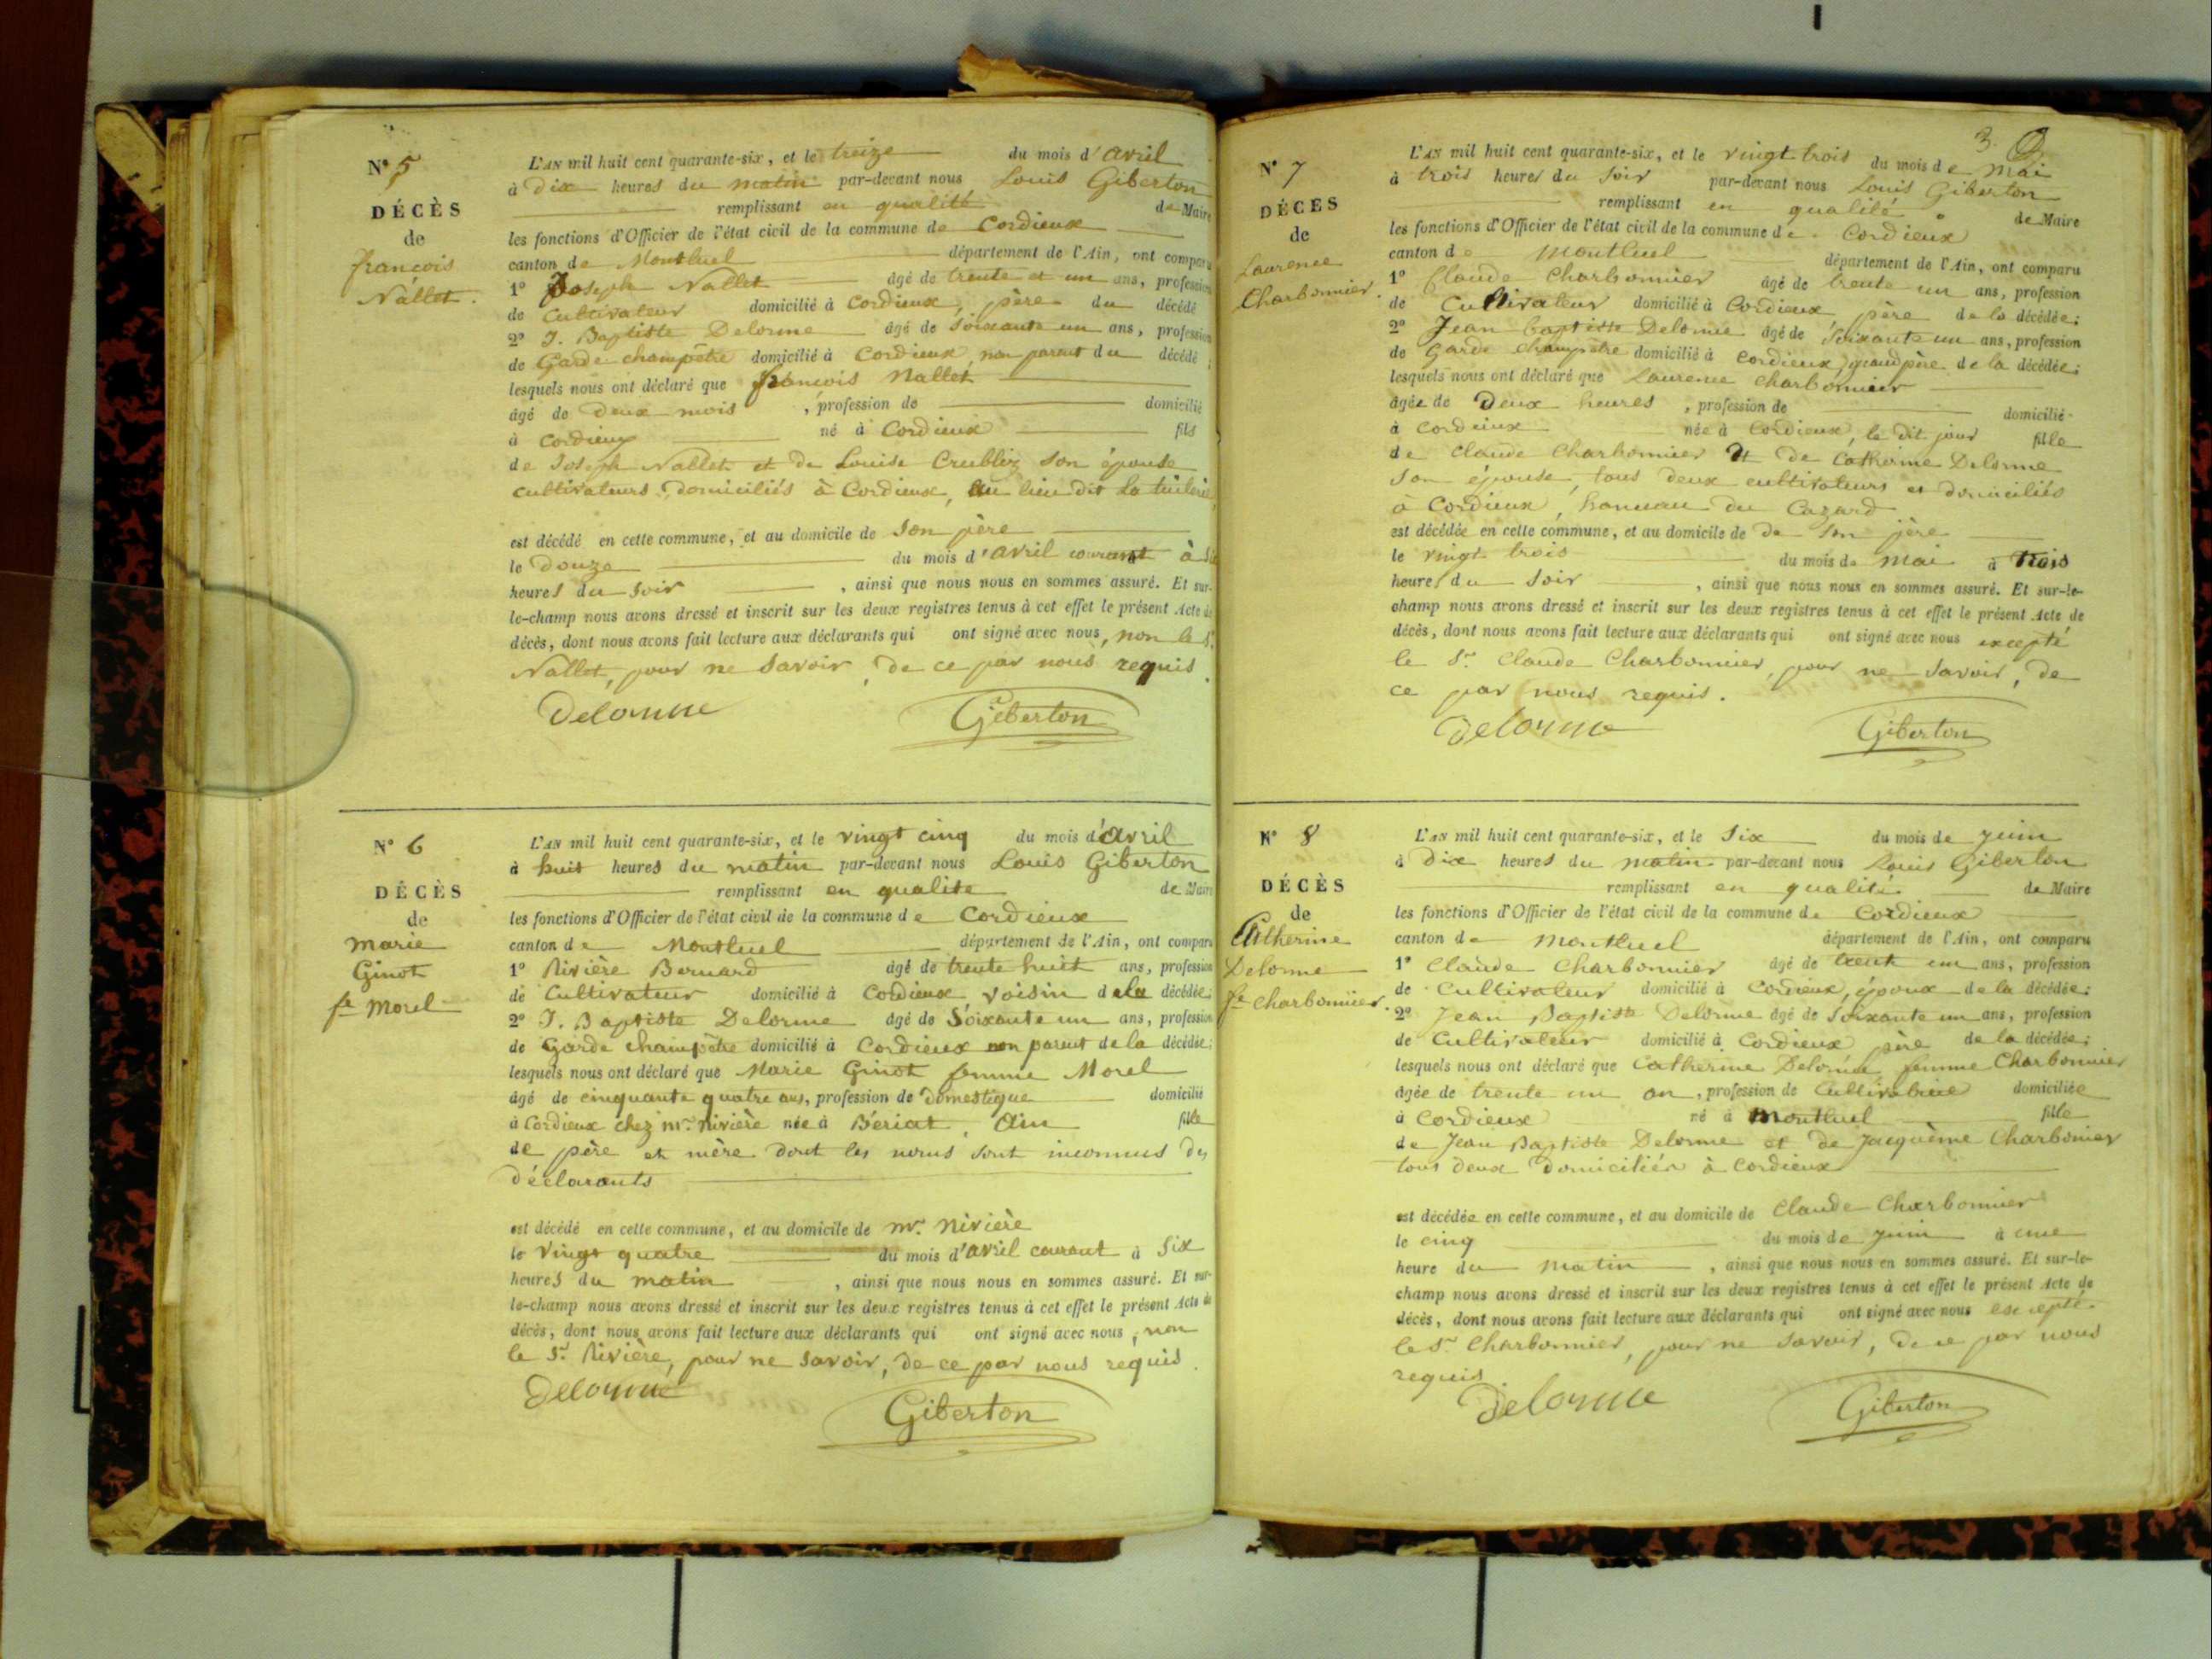 N° 5
DÉCÈS
de
françois
Nallet.
L'AN mil huit cent quarante-six, et le treize du mois d'avril
à dix heures du matin par-devant nous Louis Giberton
remplissant en qualité de Maire
les fonctions d'Officier de l'état civil de la commune de Cordieux
canton de Montluel département de l'Ain, ont comparu
1° Joseph Nallet âgé de trente et un ans, profession
de Cultivateur domicilié à Cordieux, père du décédé
2° J. Baptiste Delorme âgé de soixante un ans, profession
de Garde champêtre domicilié à Cordieux non parent du décédé ;
lesquels nous ont déclaré que françois Nallet
âgé de deux mois , profession de domicilié
à Cordieux né à Cordieux fils
de Joseph Nallet et de Louise son épouse
cultivateurs, domiciliés à Cordieux, au lieu dit la tuilerie
est décédé en cette commune, et au domicile de son père
le douze du mois d'avril courant à
heures du soir , ainsi que nous nous en sommes assuré. Et sur-
le-champ nous avons dressé et inscrit sur les deux registres tenus à cet effet le présent Acte de
décès, dont nous avons fait lecture aux déclarants qui ont signé avec nous, non le Sr.
Nallet, pour ne savoir, de ce par nous requis.
Delorme Giberton
N° 6
DÉCÈS
de
marie
Ginot
fe Morel
L'AN mil huit cent quarante-six, et le vingt cinq du mois d'avril
à huit heures du matin par-devant nous Louis Giberton
remplissant en qualité de Maire
les fonctions d'Officier de l'état civil de la commune de Cordieux
canton de Montluel département de l'Ain, ont comparu
1° Rivière Bernard âgé de trente huit ans, profession
de Cultivateur domicilié à Cordieux, voisin de la décédée;
2° J. Baptiste Delorme âgé de Soixante un ans, profession
de Garde champêtre domicilié à Cordieux non parent de la décédée;
lesquels nous ont déclaré que Marie Ginot femme Morel
âgé de cinquante quatre ans, profession de domestique domicilié
à Cordieux chez mr. Rivière née à Bériat, Ain fille
de père et mère dont les noms sont inconnus des
déclarants
est décédé en cette commune, et au domicile de mr. Rivière
le vingt quatre du mois d'avril courant à six
heures du matin , ainsi que nous nous en sommes assuré. Et sur-
le-champ nous avons dressé et inscrit sur les deux registres tenus à cet effet le présent Acte de
décès, dont nous avons fait lecture aux déclarants qui ont signé avec nous, non
le Sr. Rivière, pour ne savoir, de ce par nous requis.
Delorme Giberton
3.
N° 7
DÉCÈS
de
Laurence
Charbonnier.
L'AN mil huit cent quarante-six, et le vingt trois du mois de Mai
à trois heures du soir par-devant nous Louis Giberton
remplissant en qualité de Maire
les fonctions d'Officier de l'état civil de la commune de Cordieux
canton de Montluel département de l'Ain, ont comparu
1° Claude Charbonnier âgé de trente un ans, profession
de Cultivateur domicilié à Cordieux père de la décédée;
2° Jean baptiste Delorme âgé de soixante un ans, profession
de Garde champêtre domicilié à Cordieux, grand père de la décédée;
lesquels nous ont déclaré que Laurence Charbonnier
âgée de deux heures , profession de domicilié
à Cordieux née à Cordieux, le dit jour fille
de Claude Charbonnier et de Catherine Delorme
son épouse, tous deux cultivateurs et domiciliés
à Cordieux, hameau du Cazard
est décédée en cette commune, et au domicile de de son père
le vingt trois du mois de mai à trois
heures du soir , ainsi que nous nous en sommes assuré. Et sur-le-
champ nous avons dressé et inscrit sur les deux registres tenus à cet effet le présent Acte de
décès, dont nous avons fait lecture aux déclarants qui ont signé avec nous excepté
le Sr. Claude Charbonnier, pour ne savoir, de
ce par nous requis.
Delorme Giberton
N° 8
DÉCÈS
de
Catherine
Delorme
fe Charbonnier.
L'AN mil huit cent quarante-six, et le six du mois de juin
à dix heures du matin par-devant nous Louis Giberton
remplissant en qualité de Maire
les fonctions d'Officier de l'état civil de la commune de Cordieux
canton de Montluel département de l'Ain, ont comparu
1° Claude Charbonnier âgé de trente un ans, profession
de Cultivateur domicilié à Cordieux, époux de la décédée;
2° Jean Baptiste Delorme âgé de soixante un ans, profession
de Cultivateur domicilié à Cordieux père de la décédée;
lesquels nous ont déclaré que Catherine Delorme femme Charbonnier
âgée de trente un an, profession de Cultivatrice domiciliée
à Cordieux né à Montluel fille
de Jean Baptiste Delorme et de Jacquème Charbonier
tous deux domiciliés à Cordieux
est décédée en cette commune, et au domicile de Claude Charbonnier
le cinq du mois de juin à une
heure du matin , ainsi que nous nous en sommes assuré. Et sur-le-
champ nous avons dressé et inscrit sur les deux registres tenus à cet effet le présent Acte de
décès, dont nous avons fait lecture aux déclarants qui ont signé avec nous excepté
le Sr. Charbonnier, pour ne savoir, de ce par nous
requis
Delorme Giberton